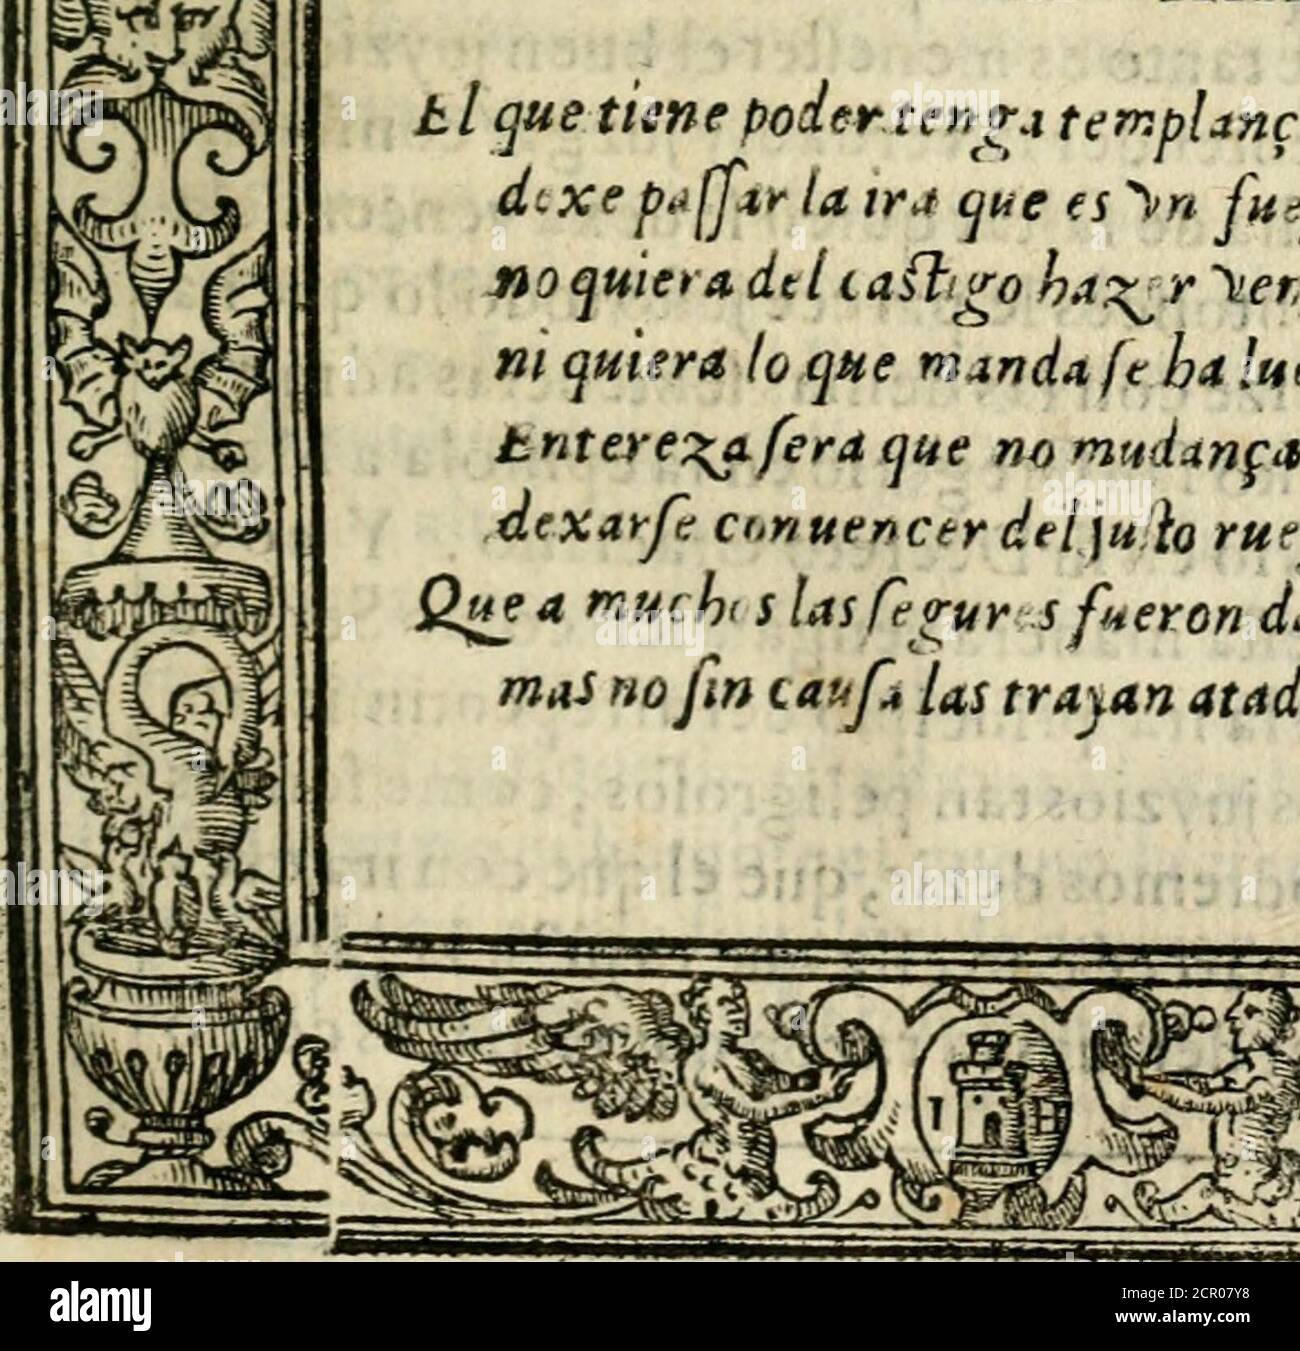 El que tiene poder tenga templanç
dexe paſſar la ira que es vn fue
no quiera del caſtigo hazer ven
ni quiera lo que manda ſe ha lue
Entereza ſera que no mudança
dexarſe conuencer del juſto rue
Que a muchos las ſegures fueron da
mas no ſin cauſa las trayan atad
alamy
Image ID: 2CR07Y8
www.alamy.com